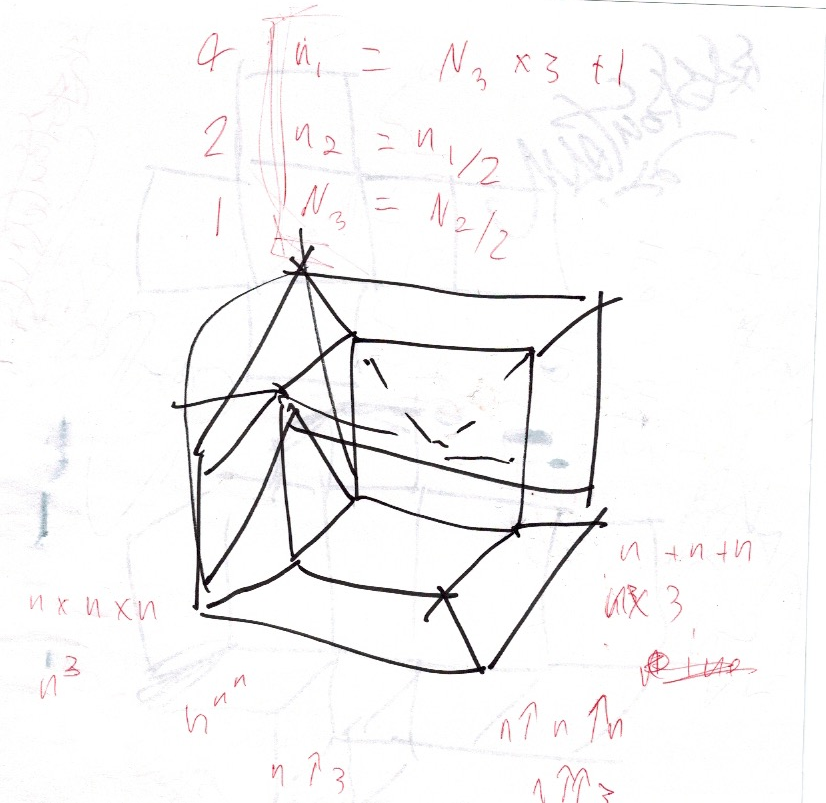 4 n₁ = N₃ × 3 + 1
2 n₂ = n₁/2
1 N₃ = N₂/2
n + n + n
n × n × n
n × 3
n³
nⁿⁿ
n↑n↑n
n↑3
↑↑3